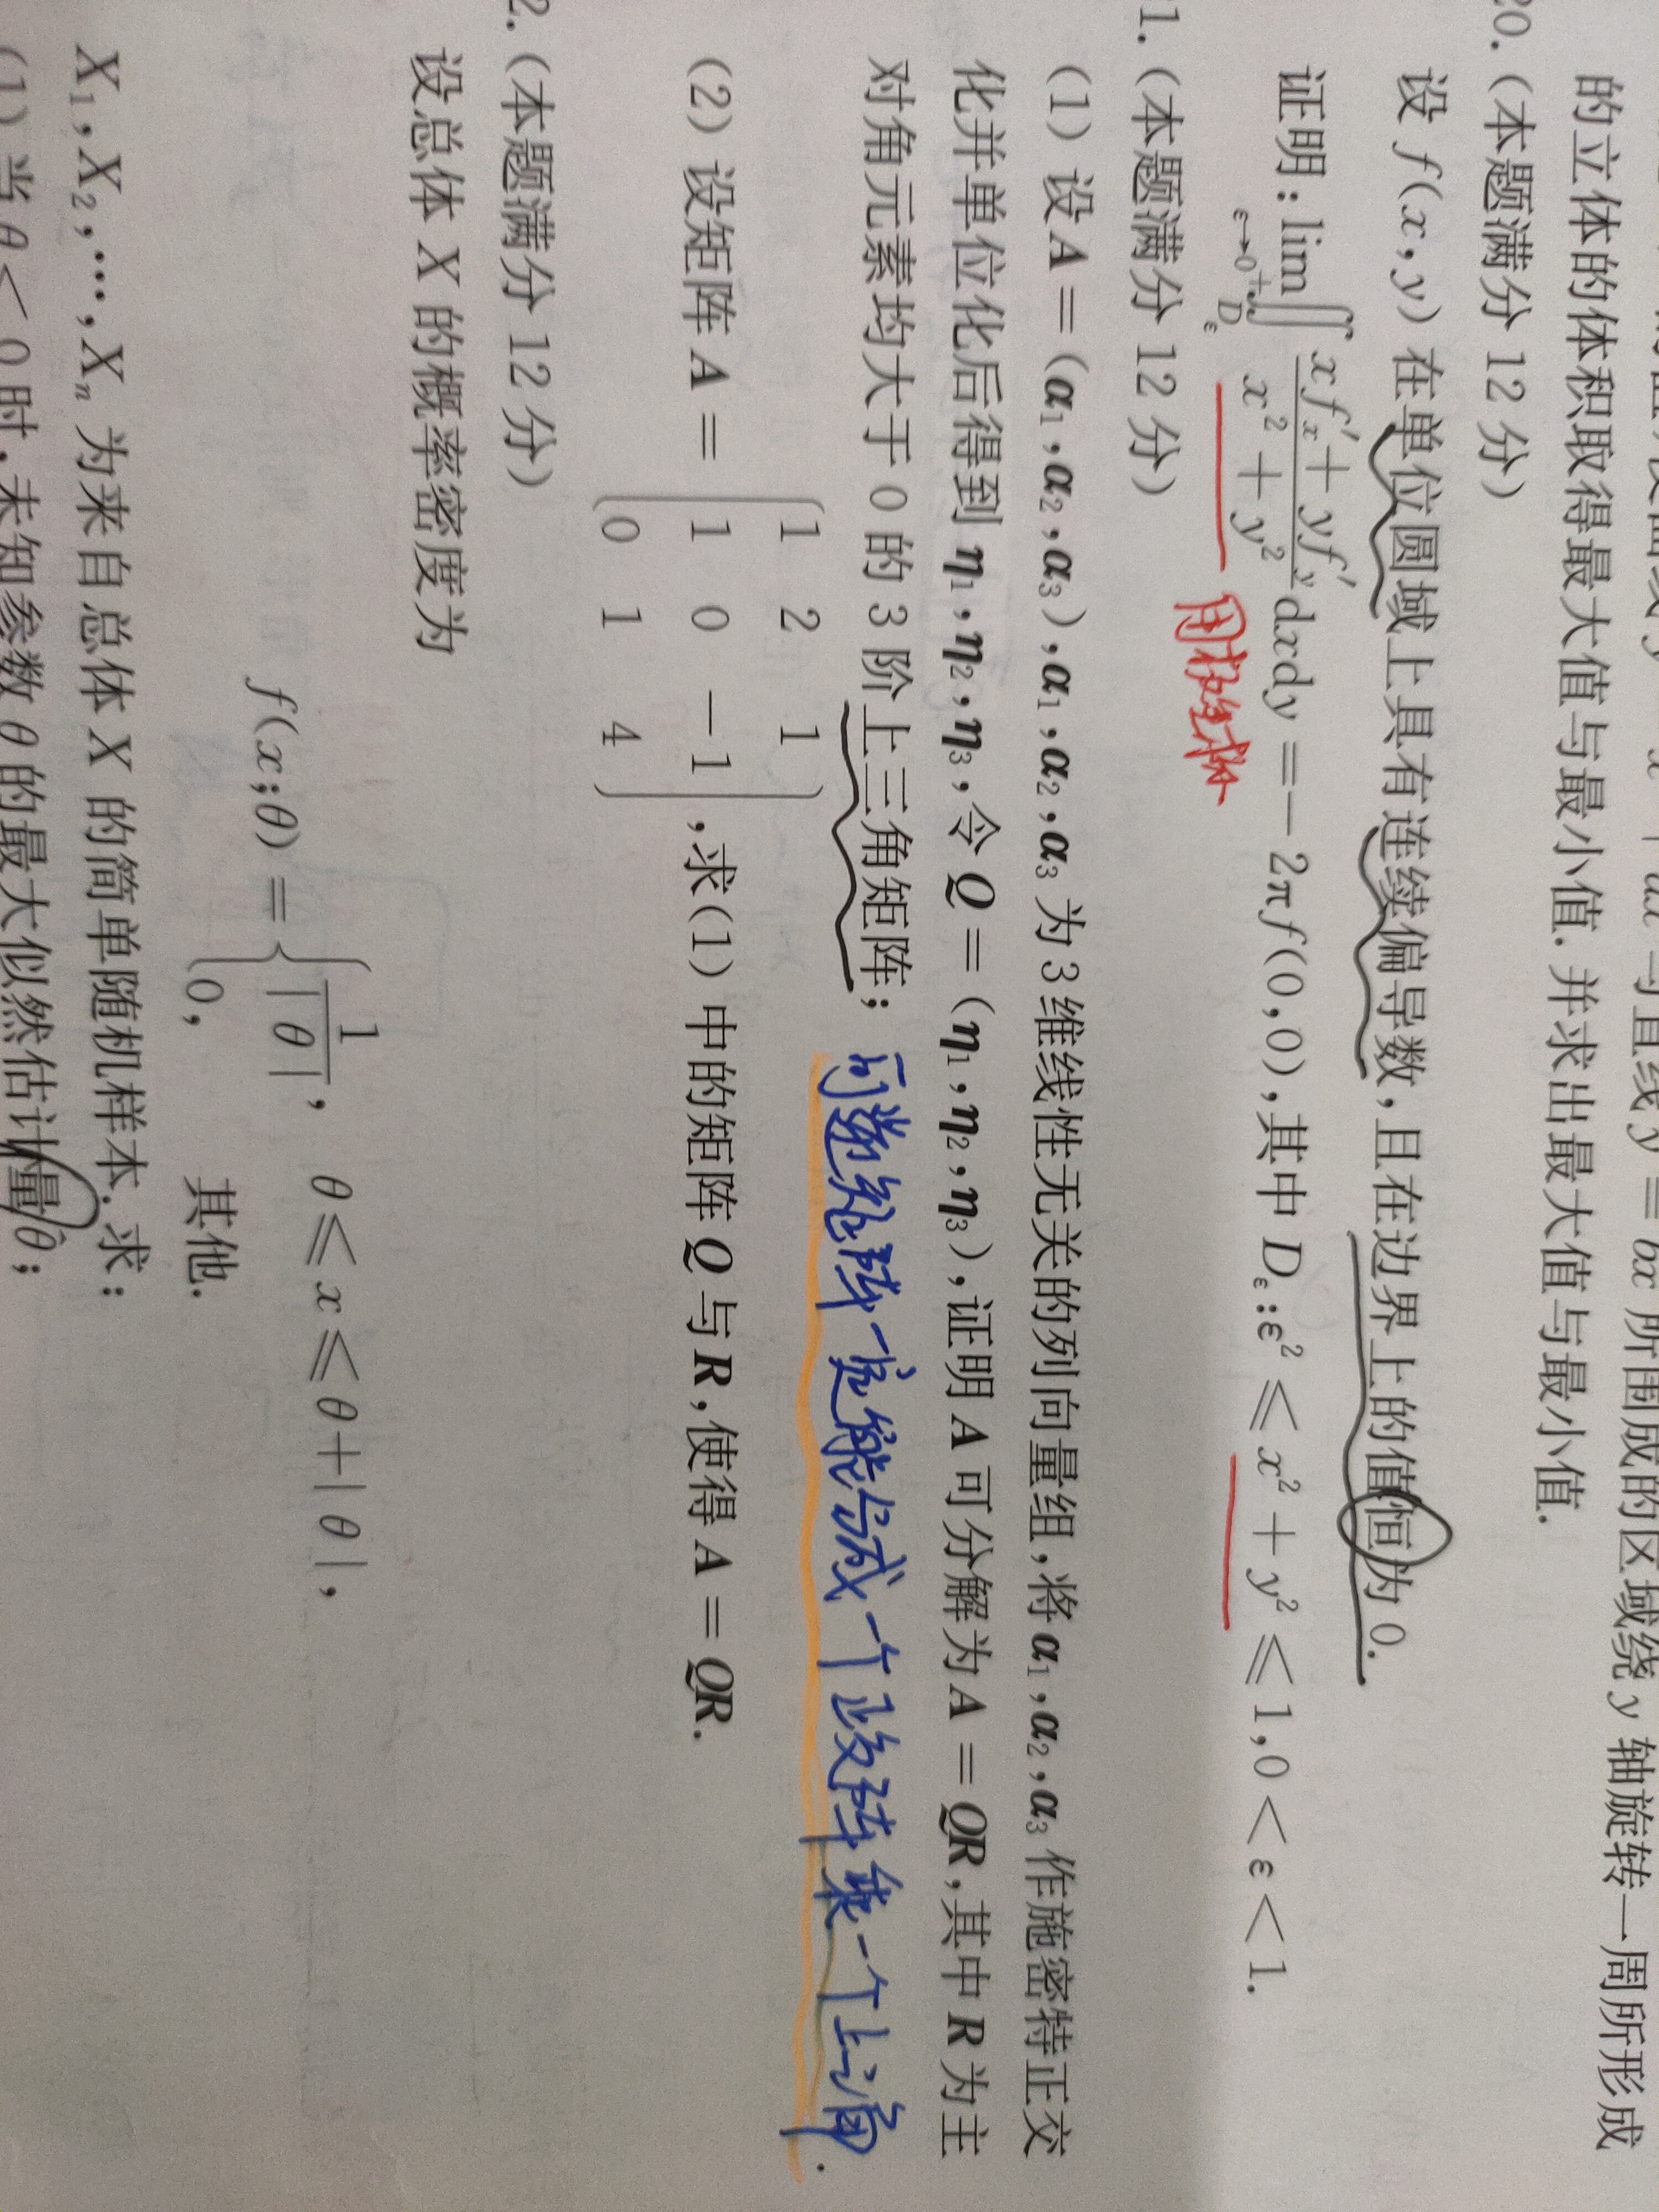 y = bx 所围成的区域绕 y 轴旋转一周所形成
的立体的体积取得最大值与最小值.并求出最大值与最小值.
20.(本题满分 12 分)
设 f(x,y) 在单位圆域上具有连续偏导数,且在边界上的值恒为 0.
证明:lim_{ε→0⁺} ∬_{D_ε} (xf'_x + yf'_y)/(x² + y²) dxdy = -2πf(0,0),其中 D_ε:ε² ≤ x² + y² ≤ 1,0 < ε < 1.
用极坐标
1.(本题满分 12 分)
(1) 设 A = (α₁,α₂,α₃),α₁,α₂,α₃ 为 3 维线性无关的列向量组,将 α₁,α₂,α₃ 作施密特正交
化并单位化后得到 η₁,η₂,η₃,令 Q = (η₁,η₂,η₃),证明 A 可分解为 A = QR,其中 R 为主
对角元素均大于 0 的 3 阶上三角矩阵; 可逆矩阵一定能写成一个正交阵乘一个上三角.
(2) 设矩阵 A =
1 2 1
1 0 -1
0 1 4
,求(1) 中的矩阵 Q 与 R,使得 A = QR.
2.(本题满分 12 分)
设总体 X 的概率密度为
f(x;θ) = { 1/|θ|, θ ≤ x ≤ θ+|θ|,
0, 其他.
X₁,X₂,⋯,Xₙ 为来自总体 X 的简单随机样本.求:
(1) 当 θ < 0 时,未知参数 θ 的最大似然估计量 θ̂;